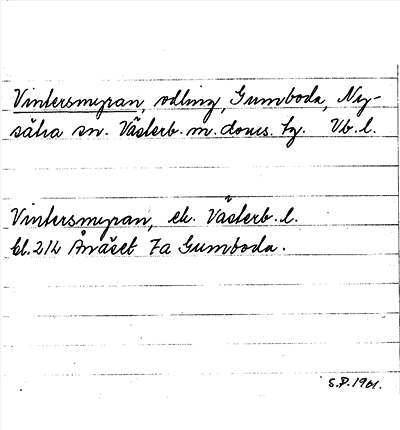 Vintersmyran, odling, Gumboda, Ny-
sätra sn. Västerb. m. doms. tg. Vb. l.
Vintersmyran, ek. Västerb. l.
bl. 212 Ånäset 7a Gumboda.
S.P. 1961.